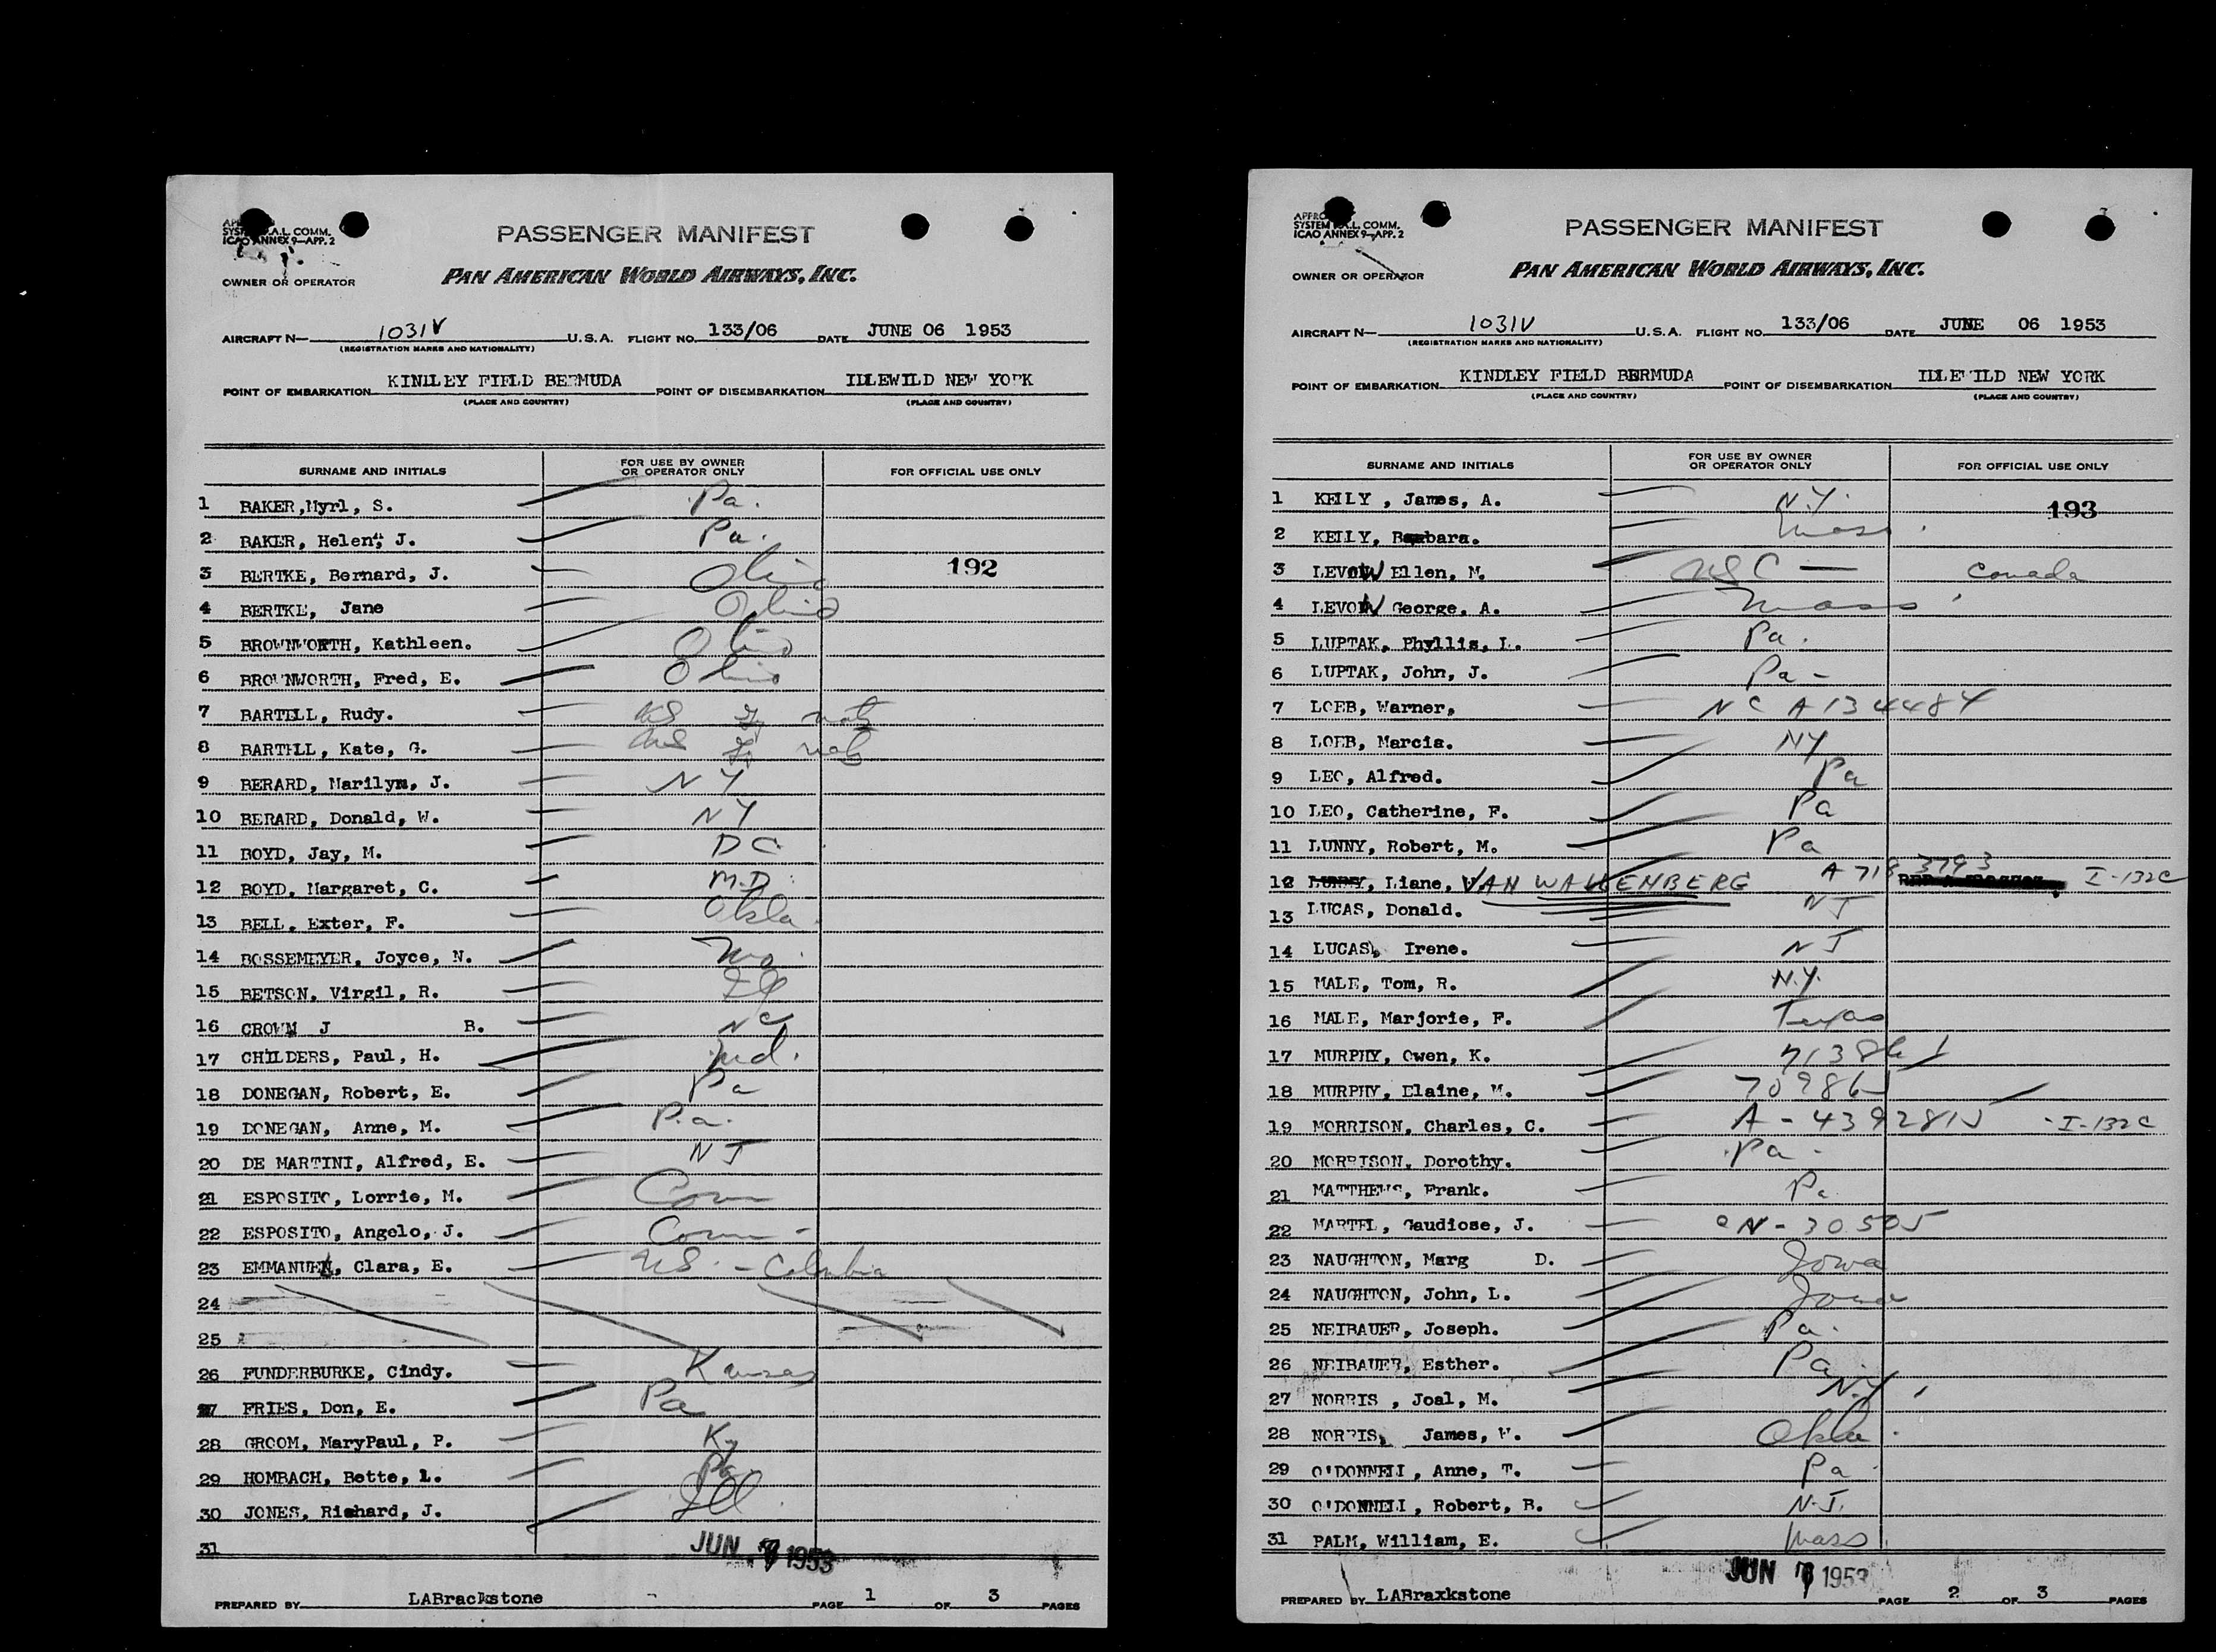 APPROVED
SYSTEM C.A.L. COMM.
ICAO ANNEX 9—APP. 2
PASSENGER MANIFEST
PAN AMERICAN WORLD AIRWAYS, INC.
OWNER OR OPERATOR
AIRCRAFT N— 1031V U.S.A. FLIGHT NO. 133/06 DATE JUNE 06 1953
(REGISTRATION MARKS AND NATIONALITY)
POINT OF EMBARKATION KINDLEY FIELD BERMUDA POINT OF DISEMBARKATION IDLEWILD NEW YORK
(PLACE AND COUNTRY) (PLACE AND COUNTRY)
SURNAME AND INITIALS FOR USE BY OWNER OR OPERATOR ONLY FOR OFFICIAL USE ONLY
1 BAKER,Myrl, S. Pa.
2 BAKER, Helen, J. Pa.
3 BERTKE, Bernard, J. Ohio 192
4 BERTKE, Jane Ohio
5 BROWNWORTH, Kathleen. Ohio
6 BROWNWORTH, Fred, E. Ohio
7 BARTELL, Rudy. US natz
8 BARTELL, Kate, G. US natz
9 BERARD, Marilyn, J. NY
10 BERARD, Donald, W. NY
11 BOYD, Jay, M. DC
12 BOYD, Margaret, C. M.D.
13 BELL, Exter, F. Okla.
14 BOSSEMEYER, Joyce, N. Mo.
15 BETSON, Virgil, R. Ill
16 CROWM J B. NC
17 CHILDERS, Paul, H. Ind.
18 DONEGAN, Robert, E. Pa
19 DONEGAN, Anne, M. P.a.
20 DE MARTINI, Alfred, E. NJ
21 ESPOSITO, Lorrie, M. Conn
22 ESPOSITO, Angelo, J. Conn -
23 EMMANUEL, Clara, E. US. - Columbia
24
25
26 FUNDERBURKE, Cindy. Kansas
27 FRIES, Don, E. Pa
28 GROOM, MaryPaul, P. Ky
29 HOMBACH, Bette, L. Pa.
30 JONES, Richard, J. Ill
31
JUN 7 1953
PREPARED BY LABrackstone PAGE 1 OF 3 PAGES
APPROVED
SYSTEM C.A.L. COMM.
ICAO ANNEX 9—APP. 2
PASSENGER MANIFEST
PAN AMERICAN WORLD AIRWAYS, INC.
OWNER OR OPERATOR
AIRCRAFT N— 1031V U.S.A. FLIGHT NO. 133/06 DATE JUNE 06 1953
(REGISTRATION MARKS AND NATIONALITY)
POINT OF EMBARKATION KINDLEY FIELD BERMUDA POINT OF DISEMBARKATION IDLEWILD NEW YORK
(PLACE AND COUNTRY) (PLACE AND COUNTRY)
SURNAME AND INITIALS FOR USE BY OWNER OR OPERATOR ONLY FOR OFFICIAL USE ONLY
1 KEILY , James, A. N.Y. 193
2 KELLY, Barbara. Mass.
3 LEVOW Ellen, M. USC — Canada
4 LEVOW George, A. Mass.
5 LUPTAK, Phyllis, L. Pa.
6 LUPTAK, John, J. Pa -
7 LOEB, Warner, NC A134484
8 LOEB, Marcia. NY
9 LEO, Alfred. Pa
10 LEO, Catherine, F. Pa
11 LUNNY, Robert, M. Pa
12 LUNNY, Liane, VAN WALLENBERG A 718 3793 I-132C
13 LUCAS, Donald. NJ
14 LUCAS, Irene. NJ
15 MALE, Tom, R. N.Y.
16 MALE, Marjorie, F. Texas
17 MURPHY, Owen, K. 71386
18 MURPHY, Elaine, M. 70986
19 MORRISON, Charles, C. A-4392815 -I-132C
20 MORRISON, Dorothy. Pa -
21 MATTHEWS, Frank. Pa
22 MARTEL, Gaudiose, J. CN-30505
23 NAUGHTON, Marg D. Iowa
24 NAUGHTON, John, L. Iowa
25 NEIBAUER, Joseph. Pa.
26 NEIBAUER, Esther. Pa.
27 NORRIS , Joal, M. N.Y.
28 NORRIS, James, W. Okla.
29 O'DONNELL, Anne, T. Pa
30 O'DONNELL, Robert, R. N.J.
31 PALM, William, E. Mass
JUN 7 1953
PREPARED BY LABraxkstone PAGE 2 OF 3 PAGES